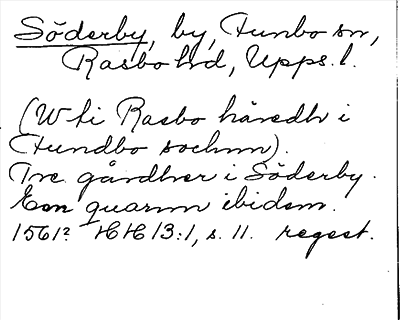 Söderby, by, Funbo sn,
Rasbo hd, Upps. l.
(Wti Rasbo häredh i
Fundbo sochnn).
Tre gårdher i Söderby.
Een quarnn ibidem.
1561? HH 13:1, s. 11. regest.